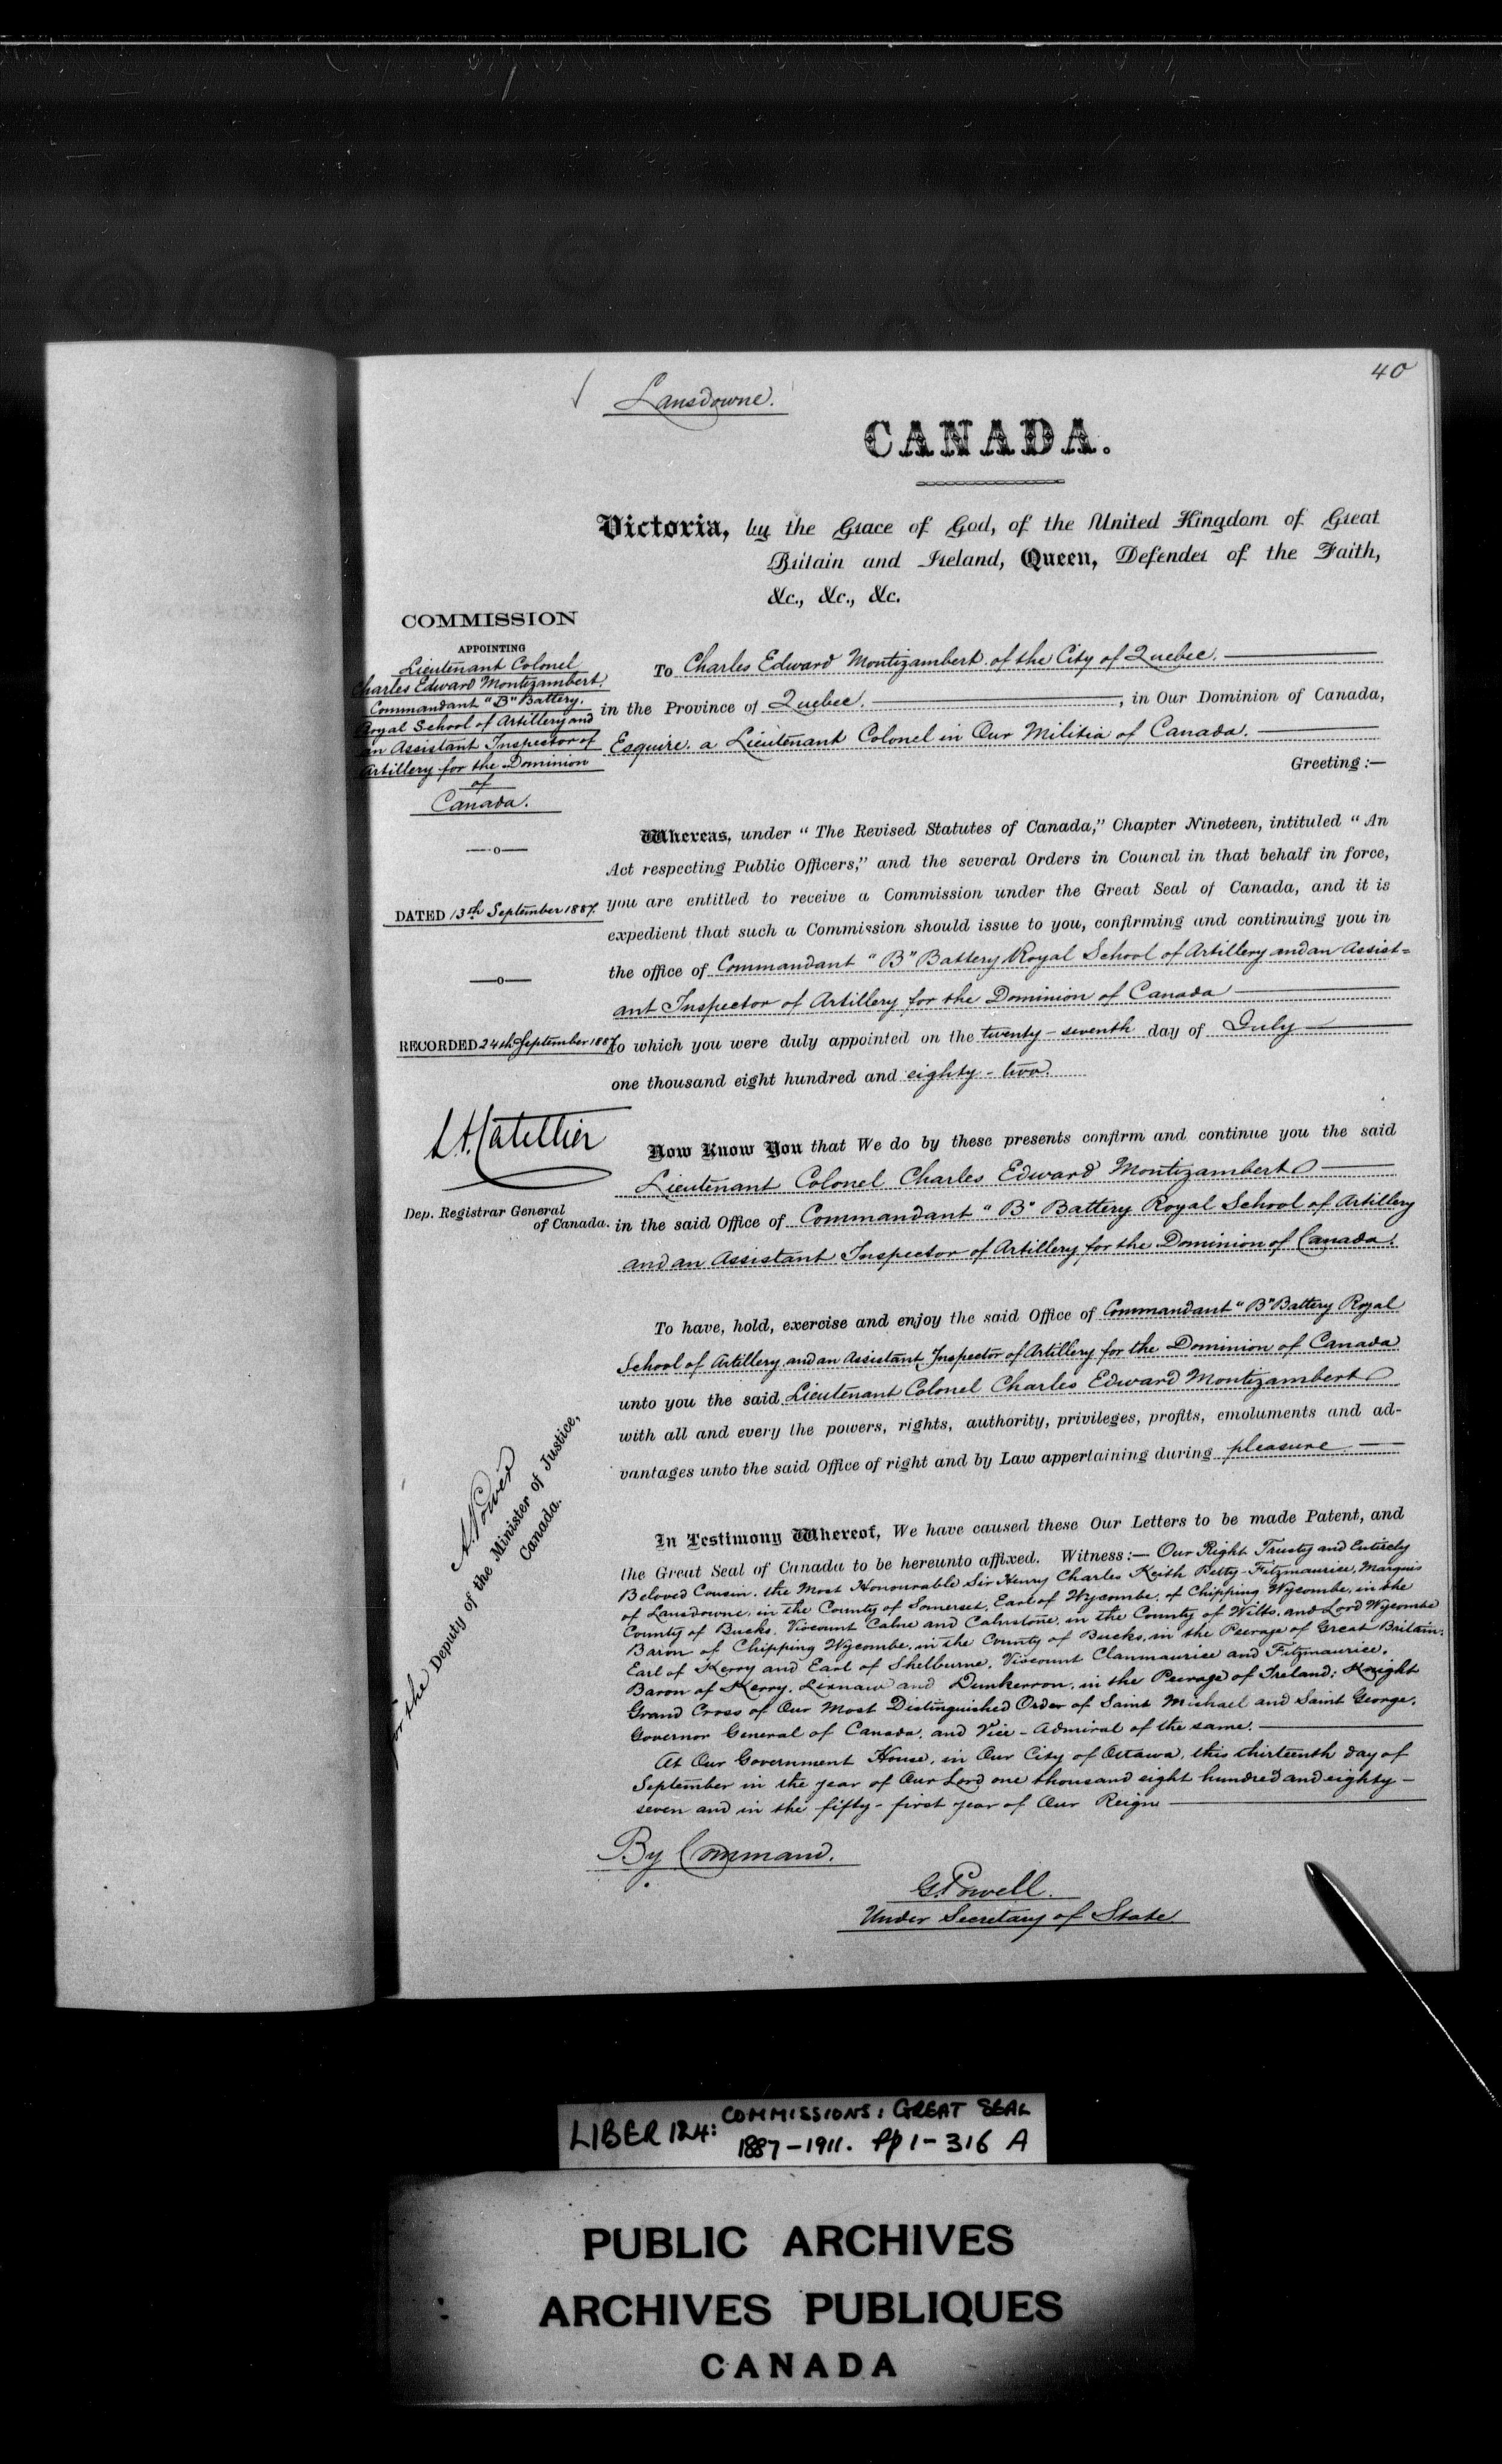 40
Lansdowne.
CANADA.
Victoria, by the Grace of God, of the United Kingdom of Great
Britain and Ireland, Queen, Defender of the Faith,
&c., &c., &c.
COMMISSION
APPOINTING
Lieutenant Colonel
Charles Edward Montizambert.
Commandant "B" Battery.
Royal School of Artillery and
an Assistant Inspector of
Artillery for the Dominion
of
Canada.
—o—
DATED 13th September 1887.
—o—
RECORDED 24th September 1887
L A Catellier
Dep. Registrar General
of Canada.
A. Power
for the Deputy of the Minister of Justice,
Canada.
To Charles Edward Montizambert. of the City of Quebec.
in the Province of Quebec. , in Our Dominion of Canada,
Esquire. a Lieutenant Colonel in Our Militia of Canada.
Greeting :—
Whereas, under "The Revised Statutes of Canada," Chapter Nineteen, intituled "An
Act respecting Public Officers," and the several Orders in Council in that behalf in force,
you are entitled to receive a Commission under the Great Seal of Canada, and it is
expedient that such a Commission should issue to you, confirming and continuing you in
the office of Commandant "B" Battery Royal School of Artillery and an Assist=
ant Inspector of Artillery for the Dominion of Canada
to which you were duly appointed on the twenty-seventh day of July
one thousand eight hundred and eighty-two.
Now Know You that We do by these presents confirm and continue you the said
Lieutenant Colonel Charles Edward Montizambert
in the said Office of Commandant "B" Battery Royal School of Artillery
and an Assistant Inspector of Artillery for the Dominion of Canada.
To have, hold, exercise and enjoy the said Office of Commandant "B" Battery Royal
School of Artillery and an Assistant Inspector of Artillery for the Dominion of Canada
unto you the said Lieutenant Colonel Charles Edward Montizambert
with all and every the powers, rights, authority, privileges, profits, emoluments and ad-
vantages unto the said Office of right and by Law appertaining during pleasure.
In Testimony Whereof, We have caused these Our Letters to be made Patent, and
the Great Seal of Canada to be hereunto affixed. Witness:— Our Right Trusty and Entirely
Beloved Cousin. the Most Honourable Sir Henry Charles Keith Petty-Fitzmaurice, Marquis
of Lansdowne, in the County of Somerset, Earl of Wycombe, of Chipping Wycombe, in the
County of Bucks, Viscount Calne and Calnstone, in the County of Wilts, and Lord Wycombe
Baron of Chipping Wycombe, in the County of Bucks, in the Peerage of Great Britain:
Earl of Kerry and Earl of Shelburne, Viscount Clanmaurice and Fitzmaurice,
Baron of Kerry, Lixnaw and Dunkerron, in the Peerage of Ireland; Knight
Grand Cross of Our Most Distinguished Order of Saint Michael and Saint George,
Governor General of Canada, and Vice-Admiral of the same.
At Our Government House, in Our City of Ottawa, this thirteenth day of
September in the year of Our Lord one thousand eight hundred and eighty-
seven and in the fifty-first year of Our Reign
By Command.
G. Powell.
Under Secretary of State
LIBER 124: COMMISSIONS: GREAT SEAL
1887-1911. pp 1-316 A
PUBLIC ARCHIVES
ARCHIVES PUBLIQUES
CANADA